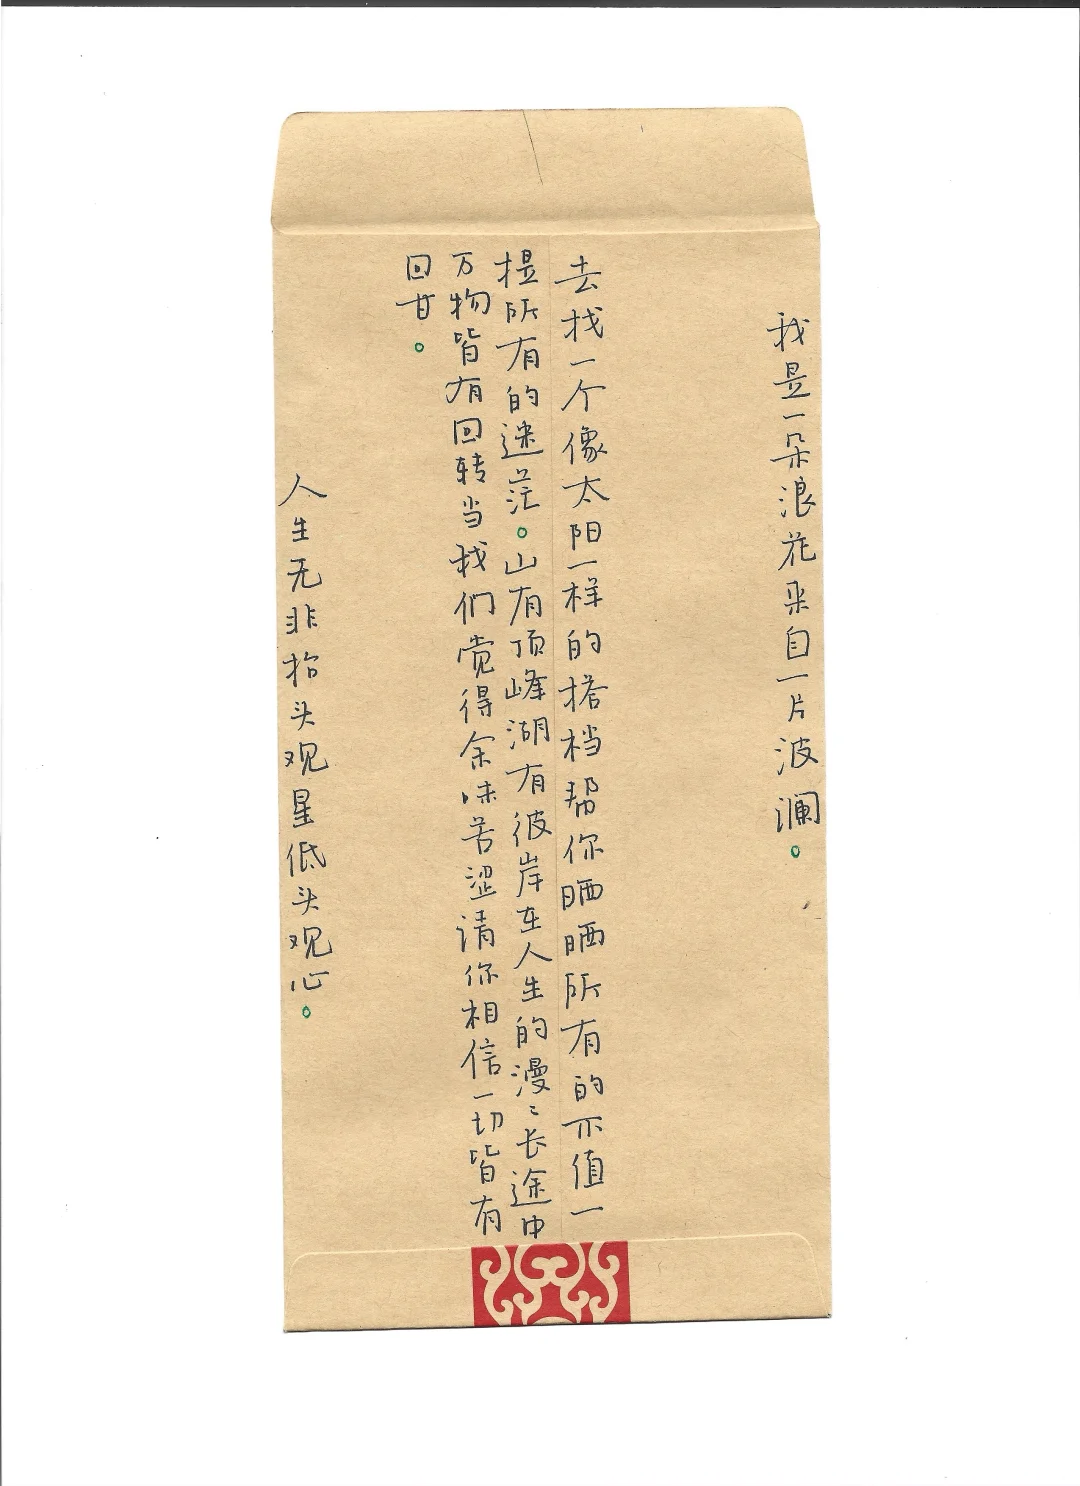 我是一朵浪花来自一片波澜。
去找一个像太阳一样的搭档帮你晒晒所有的不值一
提所有的迷茫。山有顶峰湖有彼岸在人生的漫〻长途中
万物皆有回转当我们觉得余味苦涩请你相信一切皆有
回甘。
人生无非抬头观星低头观心。